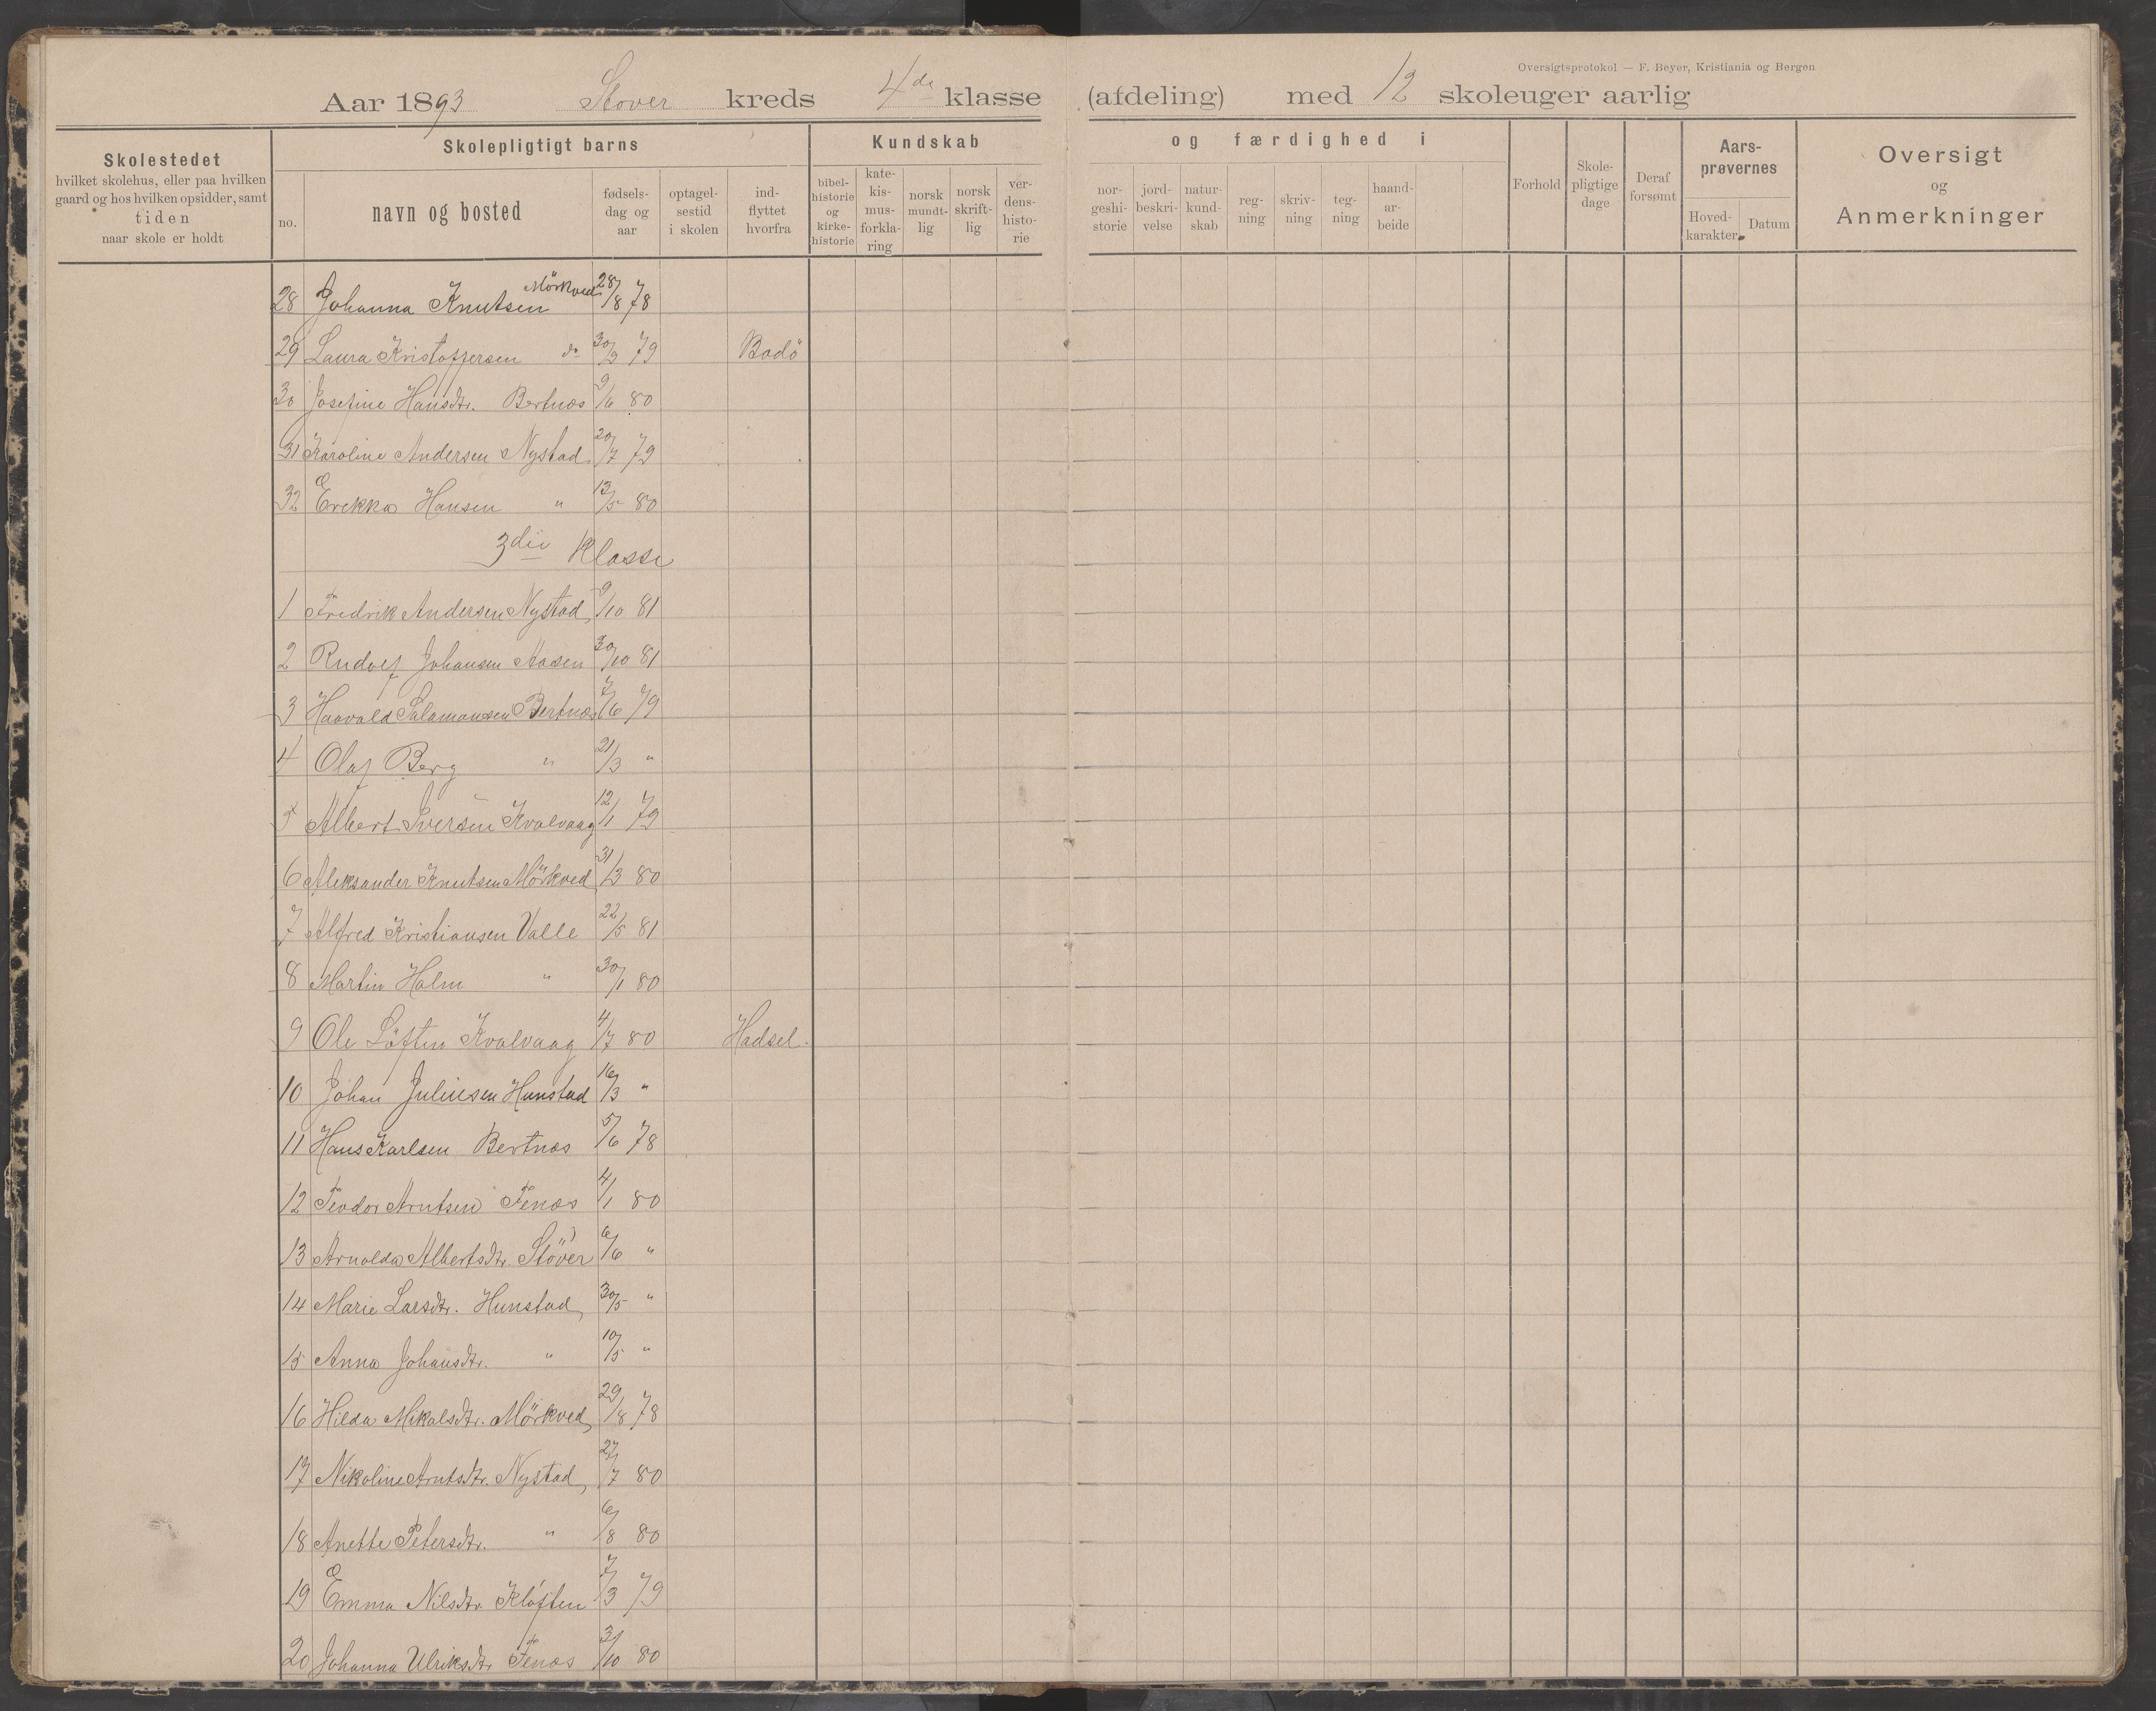 Oversigtsprotokol — F. Beyer, Kristiania og Bergen
Aar 1893 Støver kreds 4de klasse (afdeling) med 12 skoleuger aarlig
Skolestedet
hvilket skolehus, eller paa hvilken
gaard og hos hvilken opsidder, samt
tiden
naar skole er holdt
Skolepligtigt barns
no.
navn og bosted
fødsels-
dag og
aar
optagel-
sestid
i skolen
ind-
flyttet
hvorfra
Kundskab og færdighed i
bibel-
historie
og
kirke-
historie
kate-
kis-
mus-
forkla-
ring
norsk
mundt-
lig
norsk
skrift-
lig
ver-
dens-
histo-
rie
nor-
geshi-
storie
jord-
beskri-
velse
natur-
kund-
skab
reg-
ning
skriv-
ning
teg-
ning
haand-
ar-
beide
Forhold
Skole-
pligtige
dage
Deraf
forsømt
Aars-
prøvernes
Hoved-
karakter
Datum
Oversigt
og
Anmerkninger
28 Johanna Knutsen Mörkved 28/8 78
29 Laura Kristoffersen do 30/9 79 Bodö
30 Josefine Hansdtr. Bertnæs 9/6 80
31 Karoline Andersen Nystad 20/7 79
32 Erekka Hansen " 13/5 80
3die Klasse
1 Fredrik Andersen Nystad 9/10 81
2 Rudolf Johansen Aasen 30/10 81
3 Haavald Salamonsen Bertnæs 7/6 79
4 Olaf Berg " 21/3 "
5 Albert Iversen Kvalvaag 12/1 79
6 Aleksander Knutsen Mörkved 31/3 80
7 Alfred Kristiansen Valle 22/5 81
8 Martin Holm " 30/1 80
9 Ole Löften Kvalvaag 4/7 80 Hadsel.
10 Johan Juliussen Hunstad 16/3 "
11 Hans Karlsen Bertnæs 5/6 78
12 Teodor Arntsen Fenæs 4/1 80
13 Arnolda Albertsdtr. Stöver 6/6 "
14 Marie Larsdtr. Hunstad, 30/5 "
15 Anna Johansdtr. " 10/5 "
16 Hilda Mikalsdtr. Mörkved, 29/8 78
17 Nikoline Arntsdtr. Nystad, 27/7 80
18 Anette Petersdtr. " 6/8 80
19 Emma Nilsdtr. Klöften 7/3 79
20 Johanna Ulriksdtr Fenæs 31/10 80